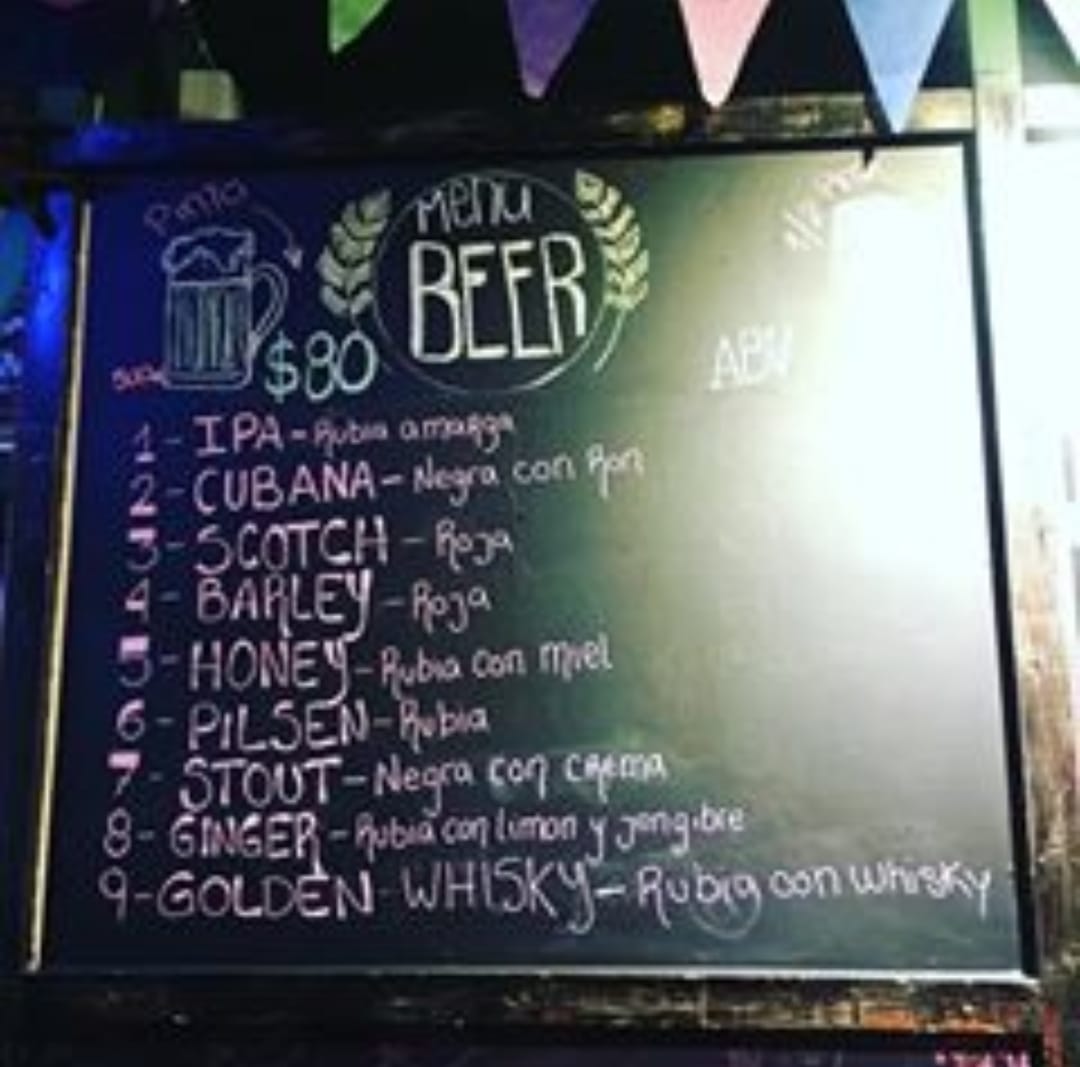 Pinta
Menu
BEER
$80
ABV
1 - IPA - Rubia amarga
2 - CUBANA - Negra con Ron
3 - SCOTCH - Roja
4 - BARLEY - Roja
5 - HONEY - Rubia con miel
6 - PILSEN - Rubia
7 - STOUT - Negra con crema
8 - GINGER - Rubia con limon y jengibre
9 - GOLDEN - WHISKY - Rubia con whisky